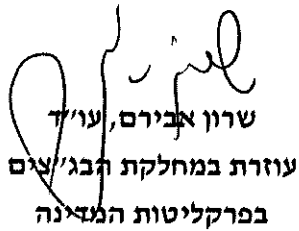 שרון אבירם, עו״ד
עוזרת במחלקת הבג״צים
בפרקליטות המדינה